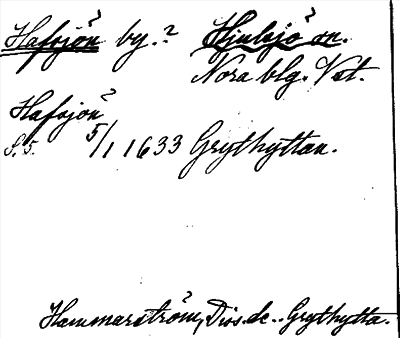 Hafsjön? by.? Hjulsjö sn.
Nora blg. Vst.
Hafsjön?
S. 5. 5/1 1633 Grythyttan.
Hammarström, Diss. de.. Grythytta.